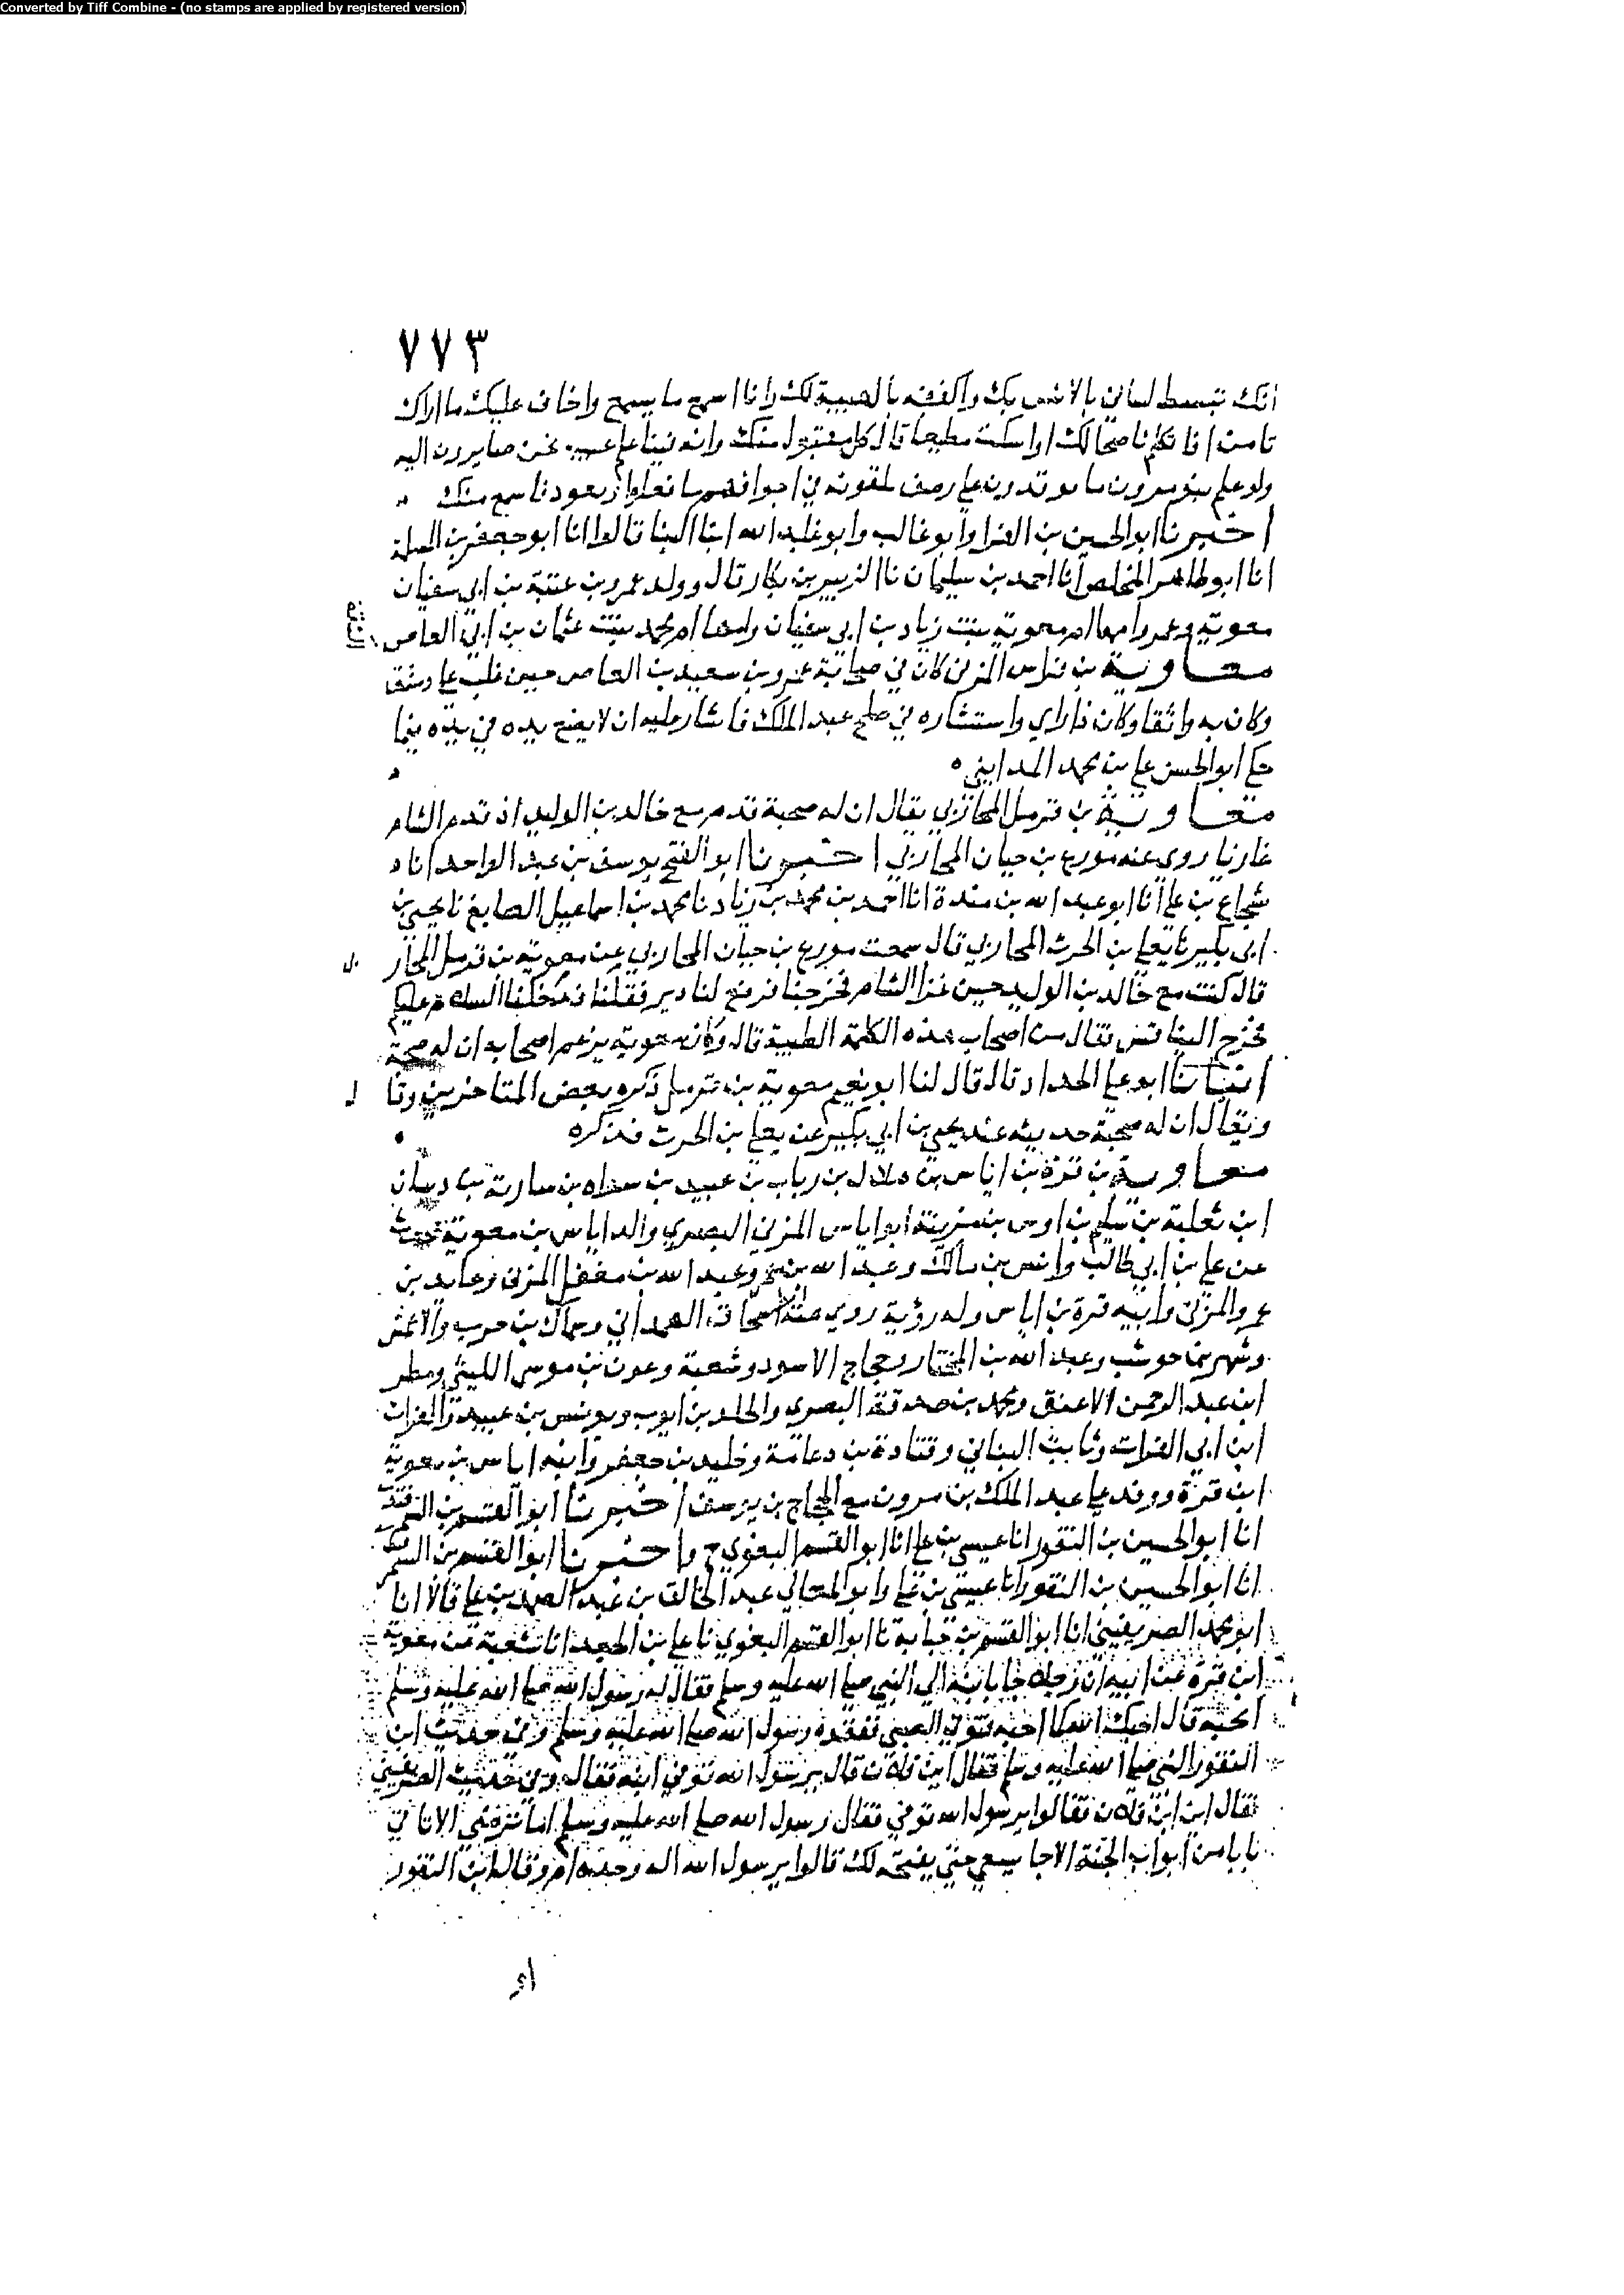 Converted by Tiff Combine - (no stamps are applied by registered version)
٧٧٣
انك تبسط لساني بالانس بك واكفته بالهيبة لك وانا اسمع ما يسمع واخاف عليك ما اراك
تامن افاتكلم ناصحا لك او اسكت مطيعا قال كل مقبول منك ولله فينا علم غيب نحن صايرون اليه
اخبرنا ابو الحسين بن الفرا وابو غالب وابو عبد الله ابنا البنا قالوا انا ابو جعفر بن المسلمة
انا ابو طاهر المخلص انا احمد بن سليمان نا الزبير بن بكار قال وولد عمرو بن عتبة بن ابي سفيان
معوية وعمر وامهما ام معوية بنت زياد بن ابي سفيان وامها ام محمد بنت عثمان بن ابي العاص
معاوية بن المزني كان في صحابة عمرو بن سعيد بن العاص حين غلب على دمشق
وكان به واثقا وكان ذا راي واستشاره في صلح عبد الملك فاشار عليه ان لا يضع يده في يده فيما
حكى ابو الحسن علي بن محمد المدايني ه
معاوية بن قرمل المحاربي يقال ان له صحبة قدم مع خالد بن الوليد اذ قدم الشام
غازيا روى عنه مورع بن حيان المحاربي اخبرنا ابو الفتح يوسف بن عبد الواحد انا
شجاع بن علي انا ابو عبد الله بن مندة انا احمد بن محمد بن زياد نا محمد بن اسماعيل الصايغ نا يحيى بن
ابي بكير نا يعلى بن الحرث المحاربي قال سمعت مورع بن حيان المحاربي عن معوية بن قرمل المحار
بي
قال كنت مع خالد بن الوليد حين غزا الشام فخرجنا فرفع لنا دير فقلنا السلام عليكم
فخرج الينا قس فقال من اصحاب هذه الكلمة الطيبة قال وكان معوية يزعم اصحابه ان له صحبة
انبانا ابو علي الحداد قال قال لنا ابو نعيم معوية بن قرمل ذكره بعض المتاخرين وقا
ل
ويقال ان له صحبة حديثه عند يحيى بن ابي بكير عن يعلى بن الحرث فذكره
معاوية بن قرة بن اياس بن هلال بن رياب بن عبيد بن سواه بن سارية بن دبيان
ابن ثعلبة بن سليم بن اوس بن مزينة ابو اياس المزني البصري والد اياس بن معوية حدث
عن علي بن ابي طالب وانس بن مالك وعبد الله بن عمر وعبد الله بن مغفل المزني وعايد بن
عمرو المزني وابيه قرة بن اياس وله رؤية روى عنه ابو اسحاق الهمداني وسماك بن حرب والاعمش
وشهر بن حوشب وعبد الله بن المختار وحجاج الاسود وشعبة وعون بن موسى الليثي ومطر
ابن عبد الرحمن الاعنق ومحمد بن صدقة البصري والجلد بن ايوب ويونس بن عبيد والفرات
ابن ابي الفرات وثابت البناني وقتادة بن دعامة وخليد بن جعفر وابنه اياس بن معوية
ابن قرة ووفد على عبد الملك بن مرون مع الحجاج بن يوسف اخبرنا ابو القسم بن السمرقندي
انا ابو الحسين بن النقور انا عيسى بن علي انا ابو القسم البغوي ح واخبرنا ابو القسم بن السمر
انا ابو الحسين بن النقور انا عيسى بن علي وابو المعالي عبد الخالق بن عبد الصمد بن علي قالا انا
ابو محمد الصريفيني انا ابو القسم بن حبابة نا ابو القسم البغوي نا علي بن الجعد انا شعبة عن معوية
ابن قرة عن ابيه ان رجلا جا بابنه الى النبي صلى الله عليه وسلم فقال له رسول الله صلى الله عليه وسلم
اتحبه قال احبك الله كما احبه فتوفي الصبي ففقده رسول الله صلى الله عليه وسلم وفي حديث ابن
النقور النبي صلى الله عليه وسلم فقال اين فلان قال يرسول الله توفي ابنه فقال وفي حديث الصريفيني
فقال اين ابن فلان فقالوا يرسول الله توفي فقال رسول الله صلى الله عليه وسلم اما ترضى الا تاتي
بابا من ابواب الجنة الا جا يسعى حتى يفتحه لك قالوا يرسول الله اله وحده ام وقال ابن النقور